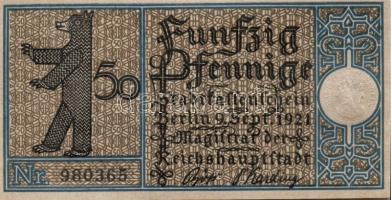 Fünfzig
50 Pfennige
Stadtkassenschein
Berlin 9. Sept. 1921
Magistrat der
Reichshauptstadt
Nr. 980365